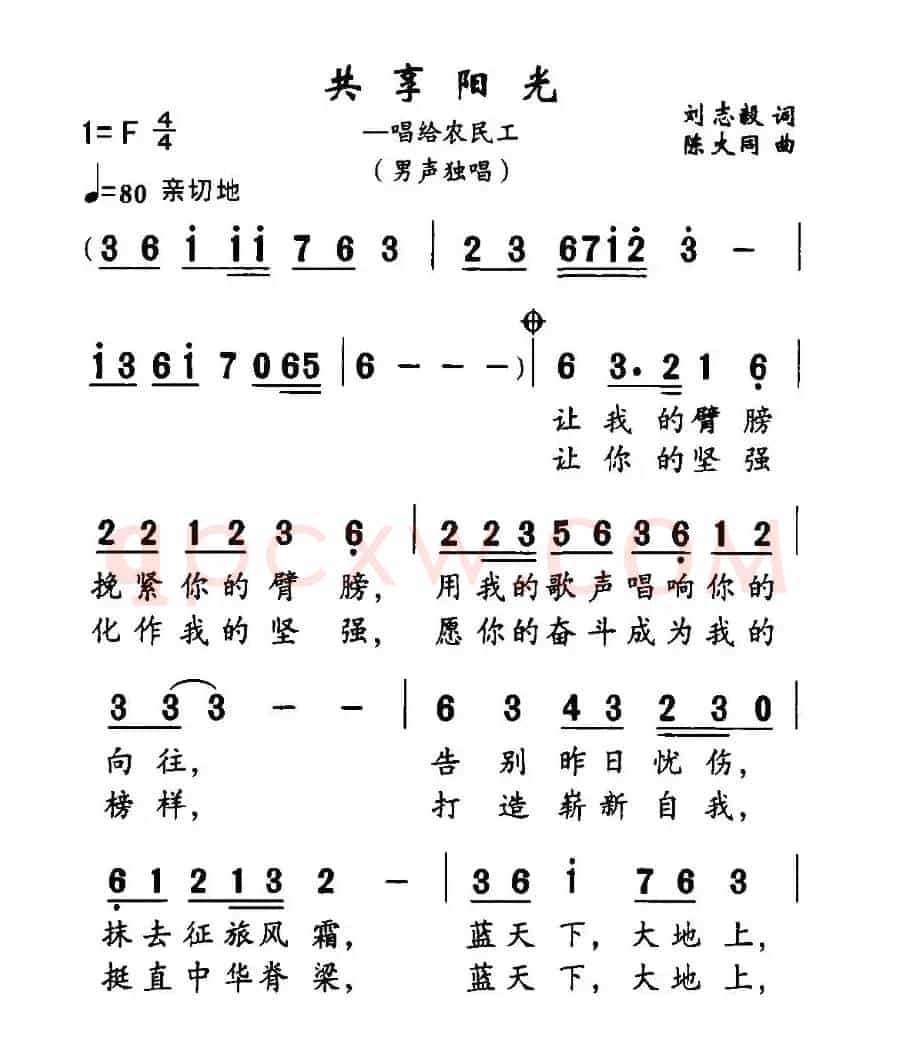 共享阳光
1=F 4/4
—唱给农民工
刘志毅 词
陈大同 曲
(男声独唱)
♩=80 亲切地
(3 6 i i i 7 6 3 | 2 3 6 7 i 2̇ 3̇ - |
i 3 6 i 7 0 6 5 | 6 - - - ) | 6 3. 2 1 6̣ |
让我的臂膀
让你的坚强
2 2 1 2 3 6̣ | 2 2 3 5 6 3 6̣ 1 2 |
挽紧你的臂膀, 用我的歌声唱响你的
化作我的坚强, 愿你的奋斗成为我的
3 3 3 - - | 6 3 4 3 2 3 0 |
向往, 告别昨日忧伤,
榜样, 打造崭新自我,
6̣ 1 2 1 3 2 - | 3 6 i 7 6 3 |
抹去征旅风霜, 蓝天下, 大地上,
挺直中华脊梁, 蓝天下, 大地上,
qpcxw.COM